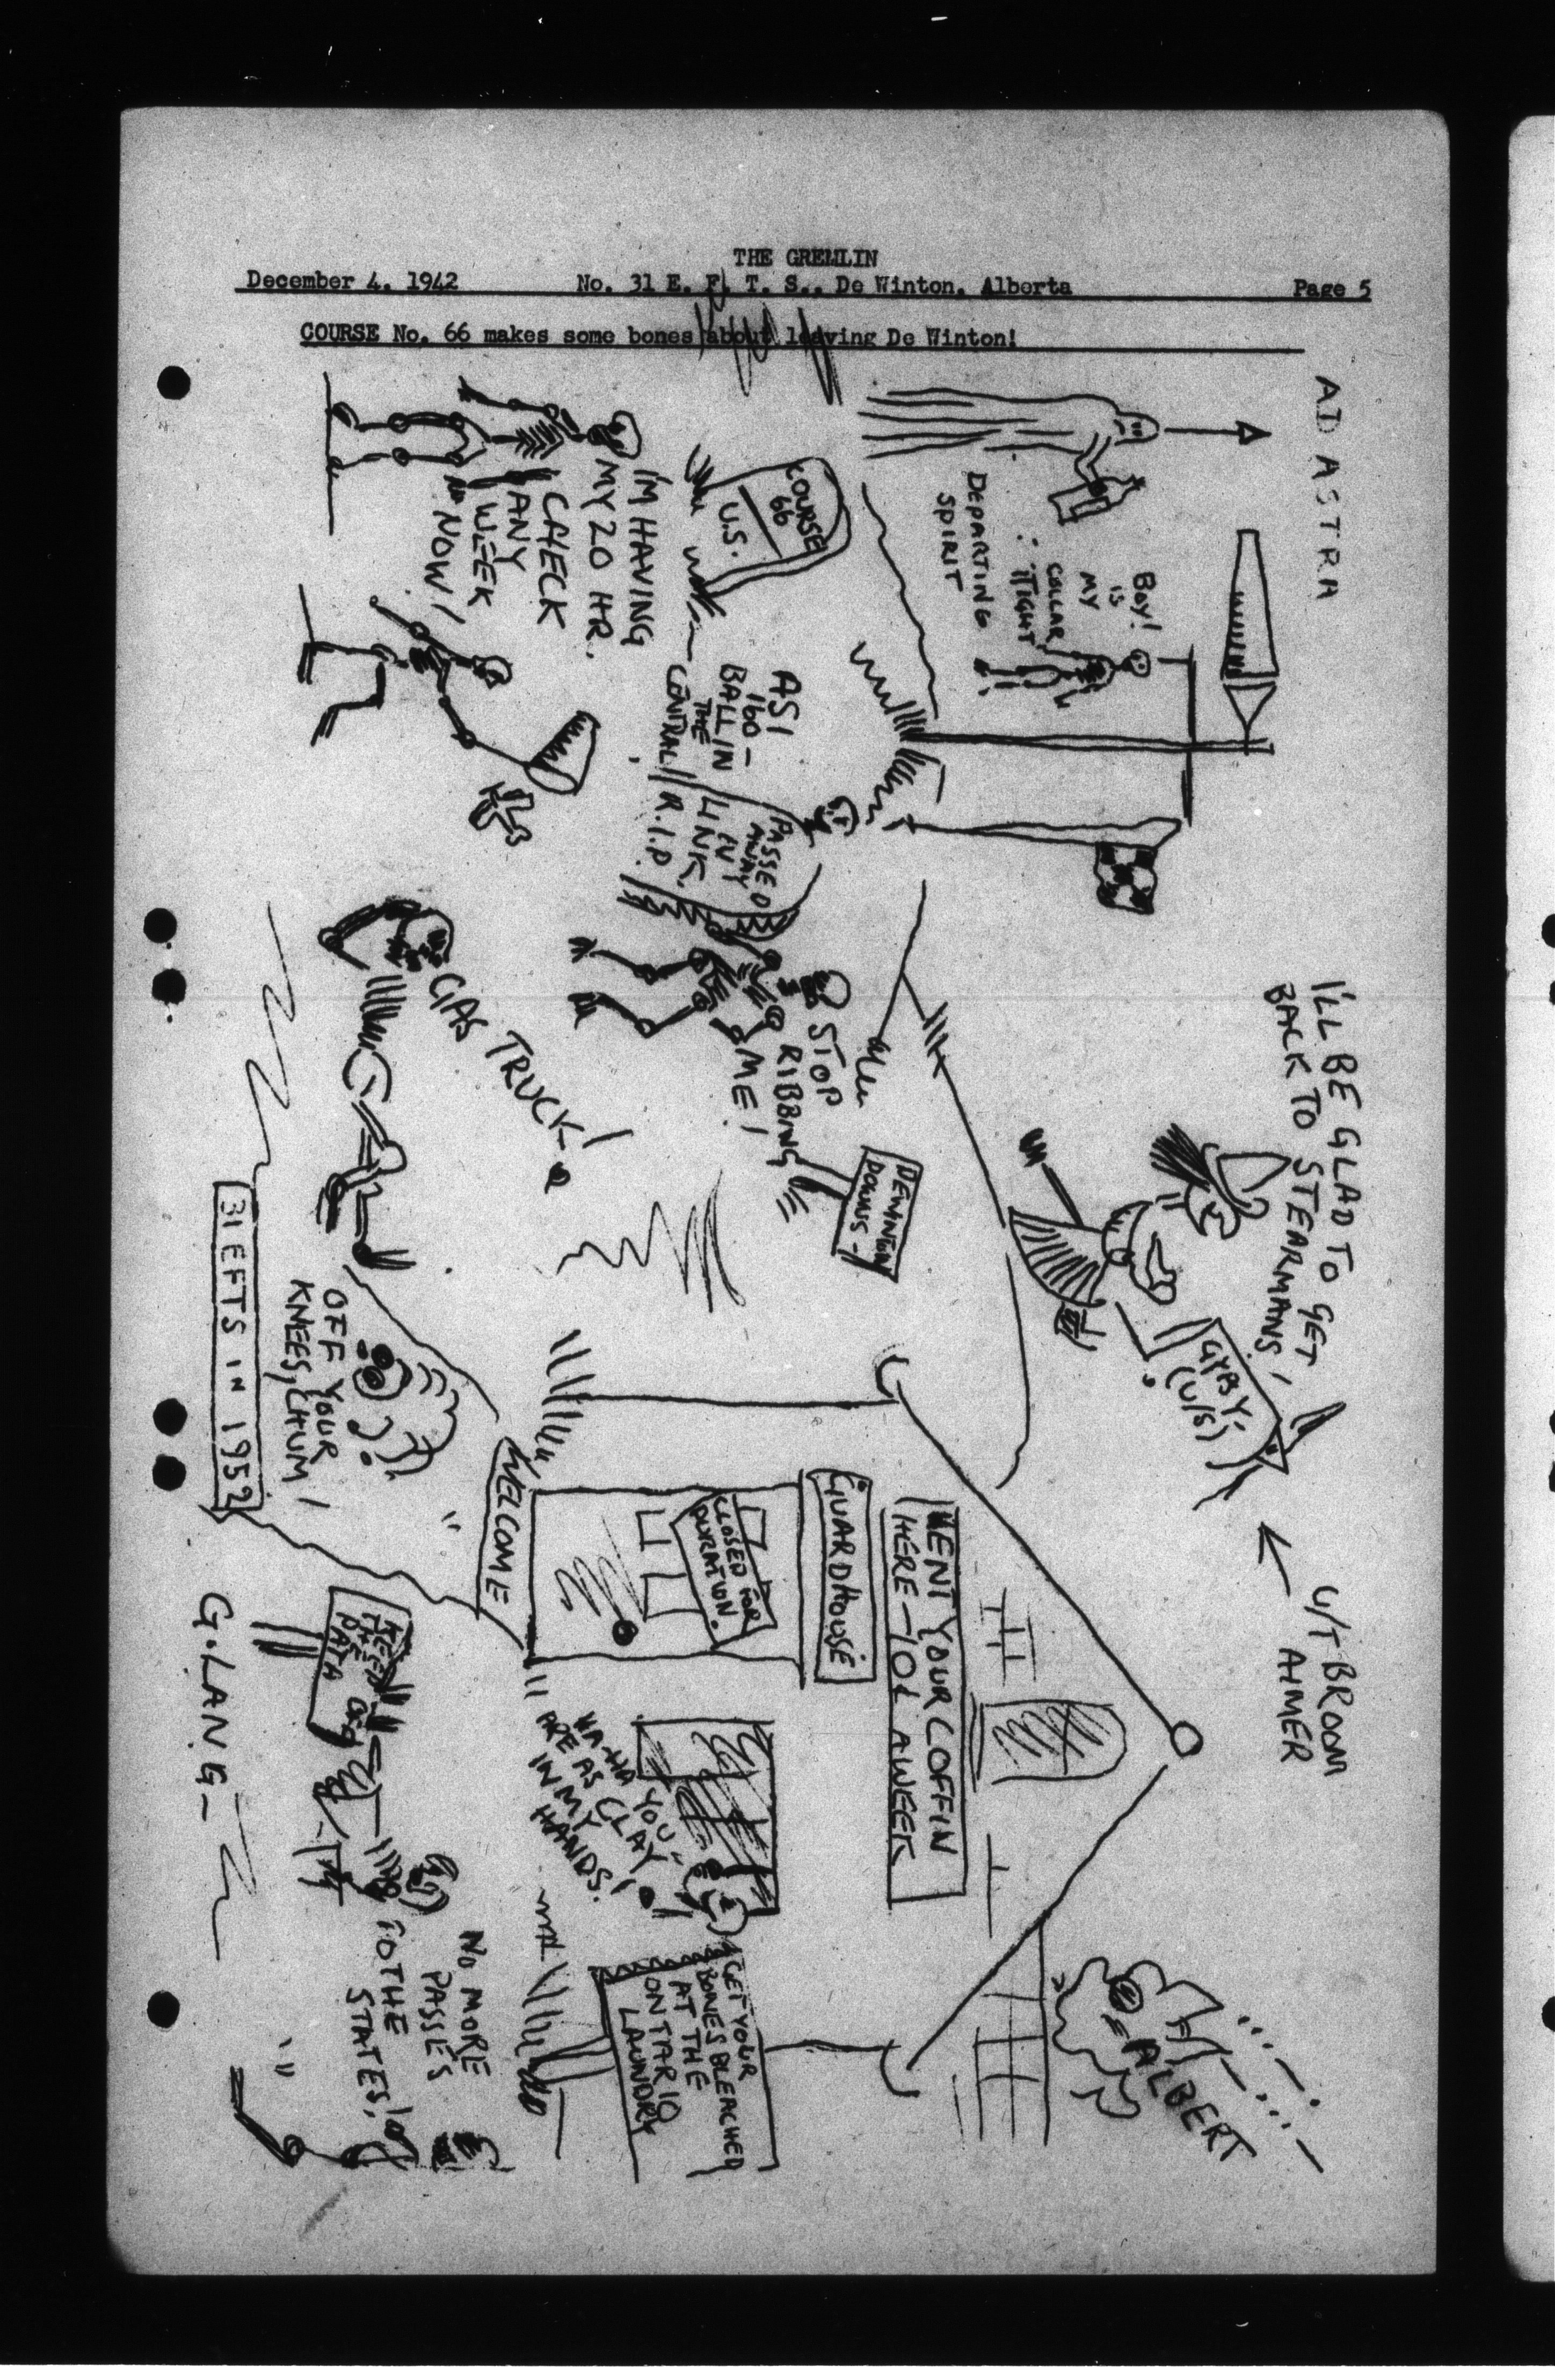 THE GREMLIN
December 4, 1942 No. 31 E. F. T. S., De Winton, Alberta Page 5
COURSE No. 66 makes some bones about leaving De Winton!
AD ASTRA
BOY!
IS
MY
COLLAR
TIGHT
DEPARTING
SPIRIT
COURSE
66
U.S.
I'M HAVING
MY 20 HR.
CHECK
ANY
WEEK
NOW!
AS I
160-
BALL IN
THE
CENTRAL
PASSED
AWAY
IN Y
LINK.
R.I.P.
I'LL BE GLAD TO GET
BACK TO STEARMANS!
GYPSY
(U/S)
U/T BROOM
AIMER
STOP
RIBBING
ME!
DEWINTON
DOWNS-
GAS TRUCK!
RENT YOUR COFFIN
HERE-10¢ A WEEK
GUARDHOUSE
CLOSED FOR
DURATION.
WELCOME
ALBERT
HA-HA YOU
ARE AS CLAY
IN MY
HANDS!
GET YOUR
BONES BLEACHED
AT THE
ONTARIO
LAUNDRY
OFF YOUR
KNEES, CHUM!
KEEP
THE
31 EFTS IN 1952
NO MORE
PASSES
TO THE
STATES!
G. LANG-